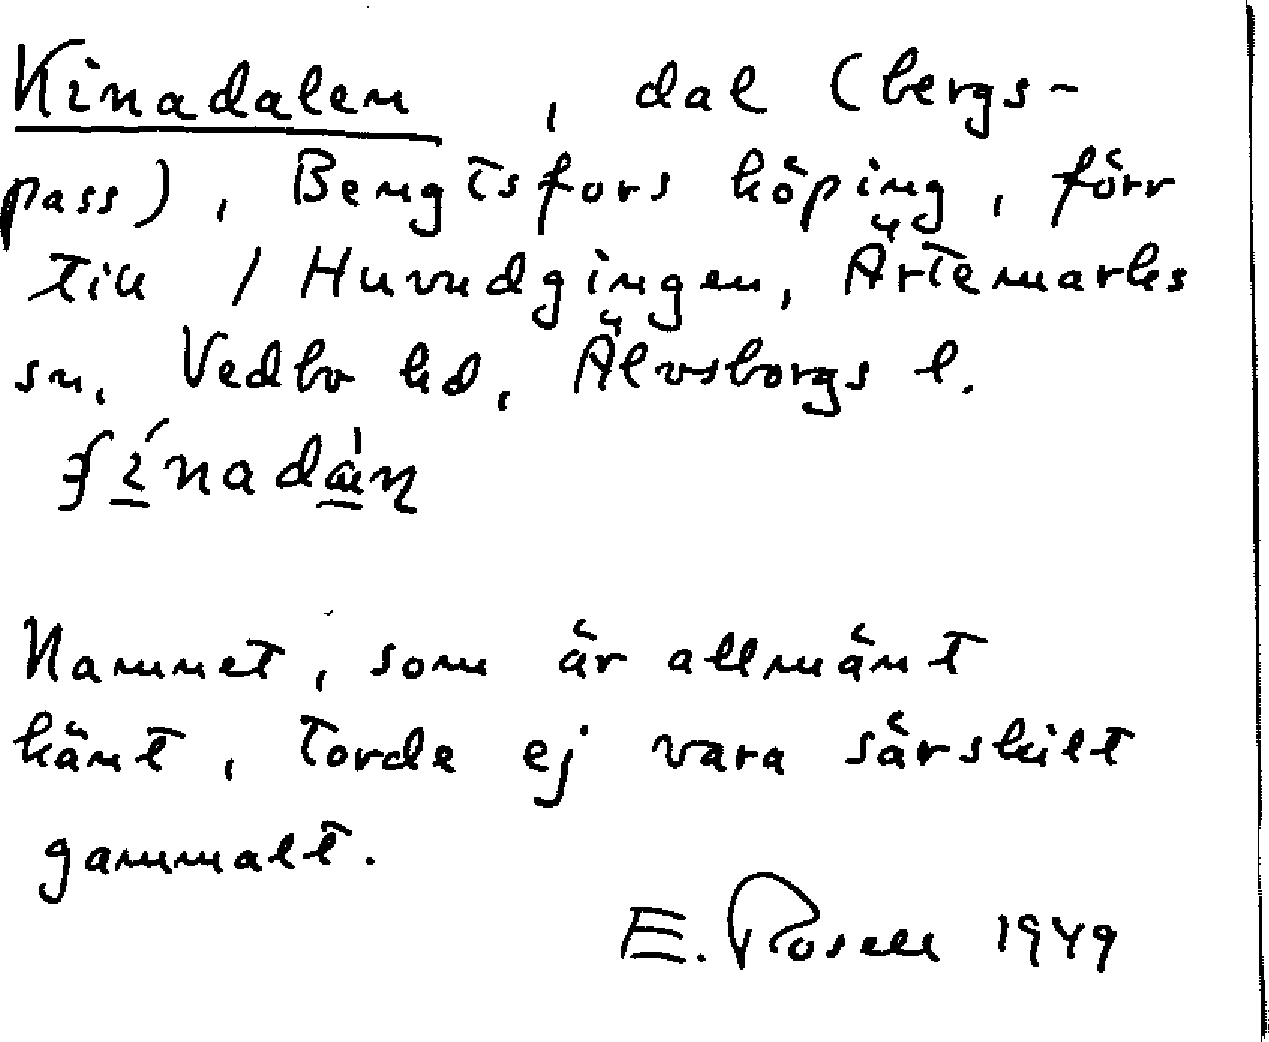 Kinadalen, dal (bergs-
pass), Bengtsfors köping, förr
till / Huvudgingen, Ärtemarks
sn, Vedbo hd, Älvsborgs l.
Namnet, som är allmänt
känt, torde ej vara särskilt
gammalt.
E. Rosell 1949